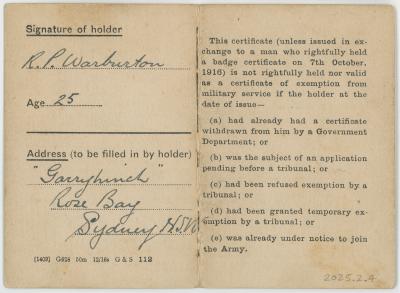 Signature of holder
R. P. Warburton
Age 25
Address (to be filled in by holder)
"Garryhinch"
Rose Bay
Sydney NSW
(1403) G618 50m 12/16s G & S 112
This certificate (unless issued in ex-
change to a man who rightfully held
a badge certificate on 7th October,
1916) is not rightfully held nor valid
as a certificate of exemption from
military service if the holder at the
date of issue—
(a) had already had a certificate
withdrawn from him by a Government
Department; or
(b) was the subject of an application
pending before a tribunal; or
(c) had been refused exemption by a
tribunal; or
(d) had been granted temporary ex-
emption by a tribunal; or
(e) was already under notice to join
the Army.
2025.2.4